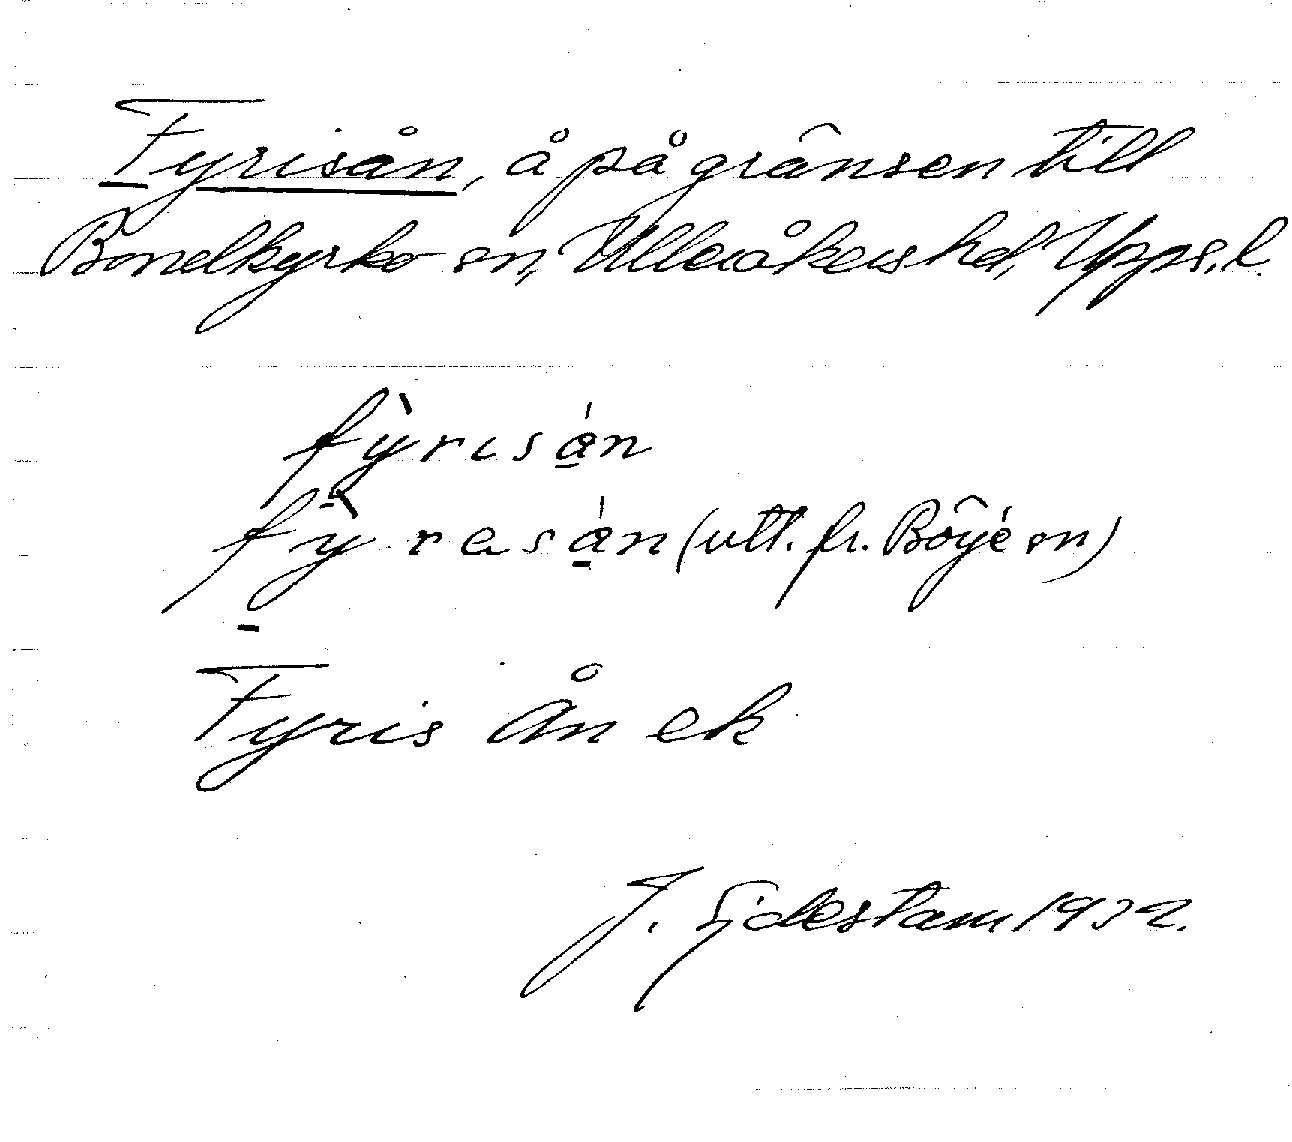 Fyrisån, å på gränsen till
Bondkyrko sn, Ulleråkers hd, Upps.l.
fỳrisån
fỳresån (utt. fr. Börje sn)
Fyris Ån ek
J. Sjdestam 1932.